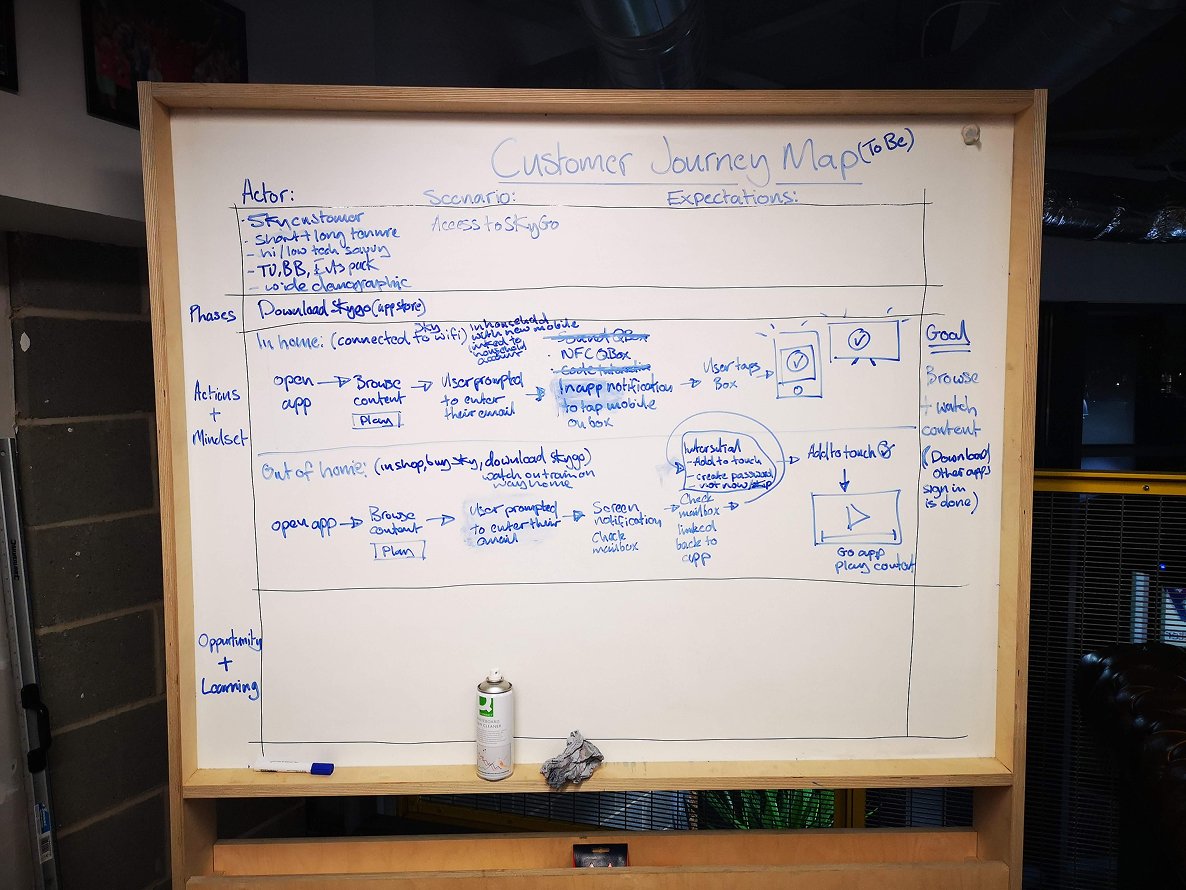 Customer Journey Map (To Be)
Actor:
Scenario:
Expectations:
- Sky customer
- short + long tenure
- hi/low tech savvy
- TV, BB, Ents pack
- wide demographic
Access to Sky Go
Phases
Download Sky go (app store)
Actions
+
Mindset
In home: (connected to Sky wifi)
In household
with new mobile
linked to
household
account
open
app
Browse
content
Play
User prompted
to enter
their email
Sound QBox
• NFC QBox
In app notification
to tap mobile
on box
User taps
Box
Out of home: (in shop, buy Sky, download Sky go)
watch on train on
way home
open app
Browse
content
Play
User prompted
to enter their
email
Screen
notification
Check
mailbox
Check
mailbox
linked
back to
app
Interstitial
- Add to touch
- create password
- not now/skip
Add to touch
Go app
play content
Goal
Browse
+ watch
content
(Download
other apps
sign in
is done)
Oppurtunity
+
Learning
WHITEBOARD
CLEANER